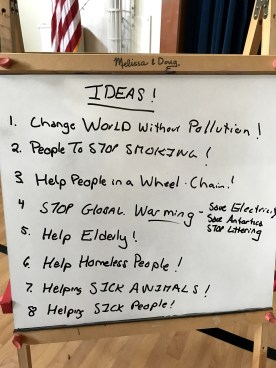 Melissa & Doug
IDEAS!
1. Change World Without Pollution!
2. People To STOP SMOKING!
3 Help People in a Wheel-Chair!
4 STOP Global Warming - Save Electricity
Save Antartica
STOP Littering
5. Help Elderly!
6. Help Homeless People!
7. Helping SICK ANIMALS!
8 Helping SICK People!